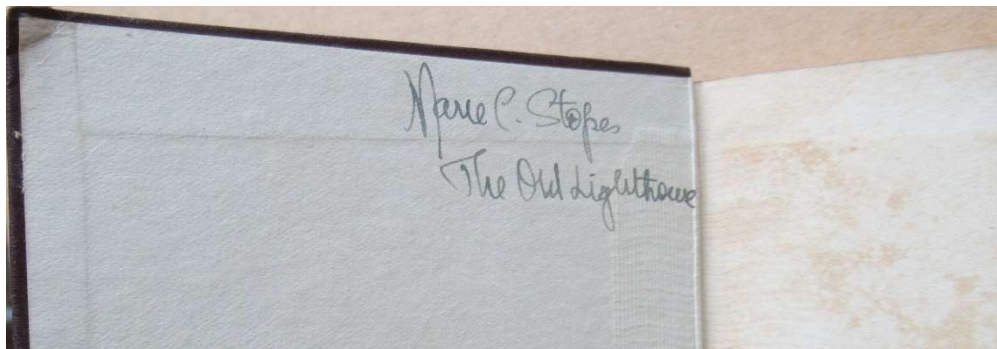 Marie C. Stopes
The Old Lighthouse